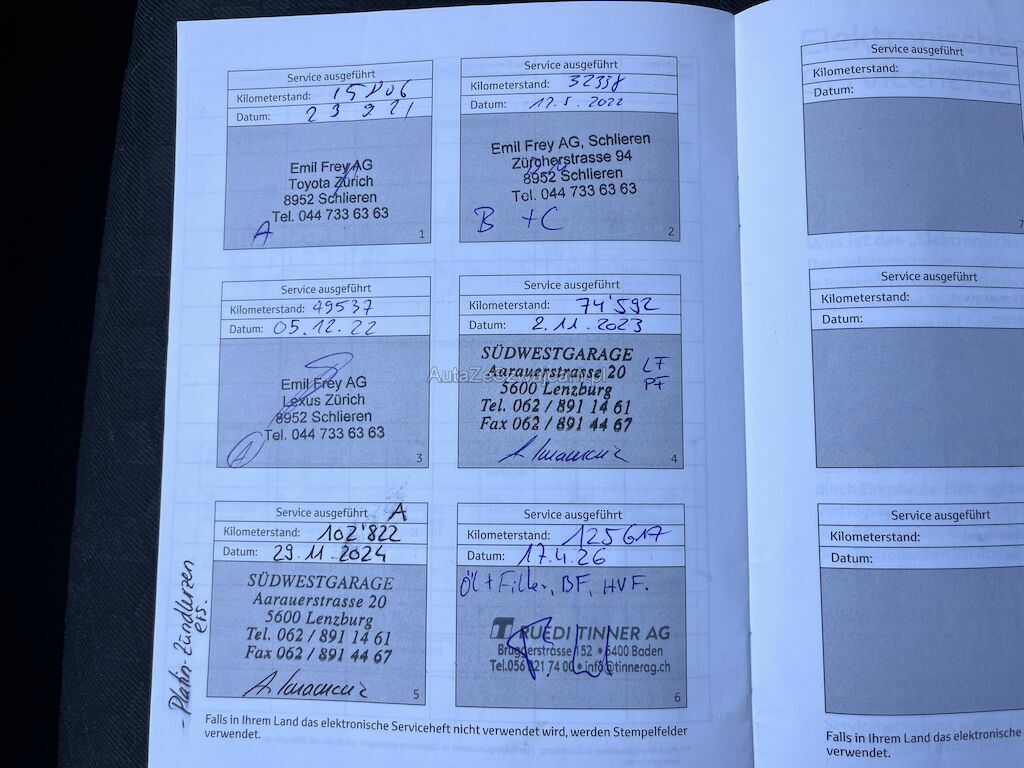 Service ausgeführt
Kilometerstand: 15806
Datum: 23 9 21
Emil Frey AG
Toyota Zürich
8952 Schlieren
Tel. 044 733 63 63
A
1
Service ausgeführt
Kilometerstand: 32338
Datum: 17.5.2022
Emil Frey AG, Schlieren
Zürcherstrasse 94
8952 Schlieren
Tel. 044 733 63 63
B + C
2
Service ausgeführt
Kilometerstand: 49537
Datum: 05.12.22
Emil Frey AG
Lexus Zürich
8952 Schlieren
Tel. 044 733 63 63
A
3
Service ausgeführt
Kilometerstand: 74'592
Datum: 2.11.2023
SÜDWESTGARAGE
Aarauerstrasse 20
5600 Lenzburg
Tel. 062 / 891 14 61
Fax 062 / 891 44 67
LF
PF
4
AutaZeSzwajcarii.pl
Service ausgeführt A
Kilometerstand: 102'822
Datum: 29.11.2024
SÜDWESTGARAGE
Aarauerstrasse 20
5600 Lenzburg
Tel. 062 / 891 14 61
Fax 062 / 891 44 67
5
- Platin-Zündkerzen
ers.
Service ausgeführt
Kilometerstand: 125617
Datum: 17.4.26
Öl + Filter, BF, HVF.
RUEDI TINNER AG
Bruggerstrasse 152 • 5400 Baden
Tel. 056 221 74 00 • info@tinnerag.ch
6
Falls in Ihrem Land das elektronische Serviceheft nicht verwendet wird, werden Stempelfelder
verwendet.
Service ausgeführt
Kilometerstand:
Datum:
7
Service ausgeführt
Kilometerstand:
Datum:
Service ausgeführt
Kilometerstand:
Datum:
Falls in Ihrem Land das elektronische
verwendet.